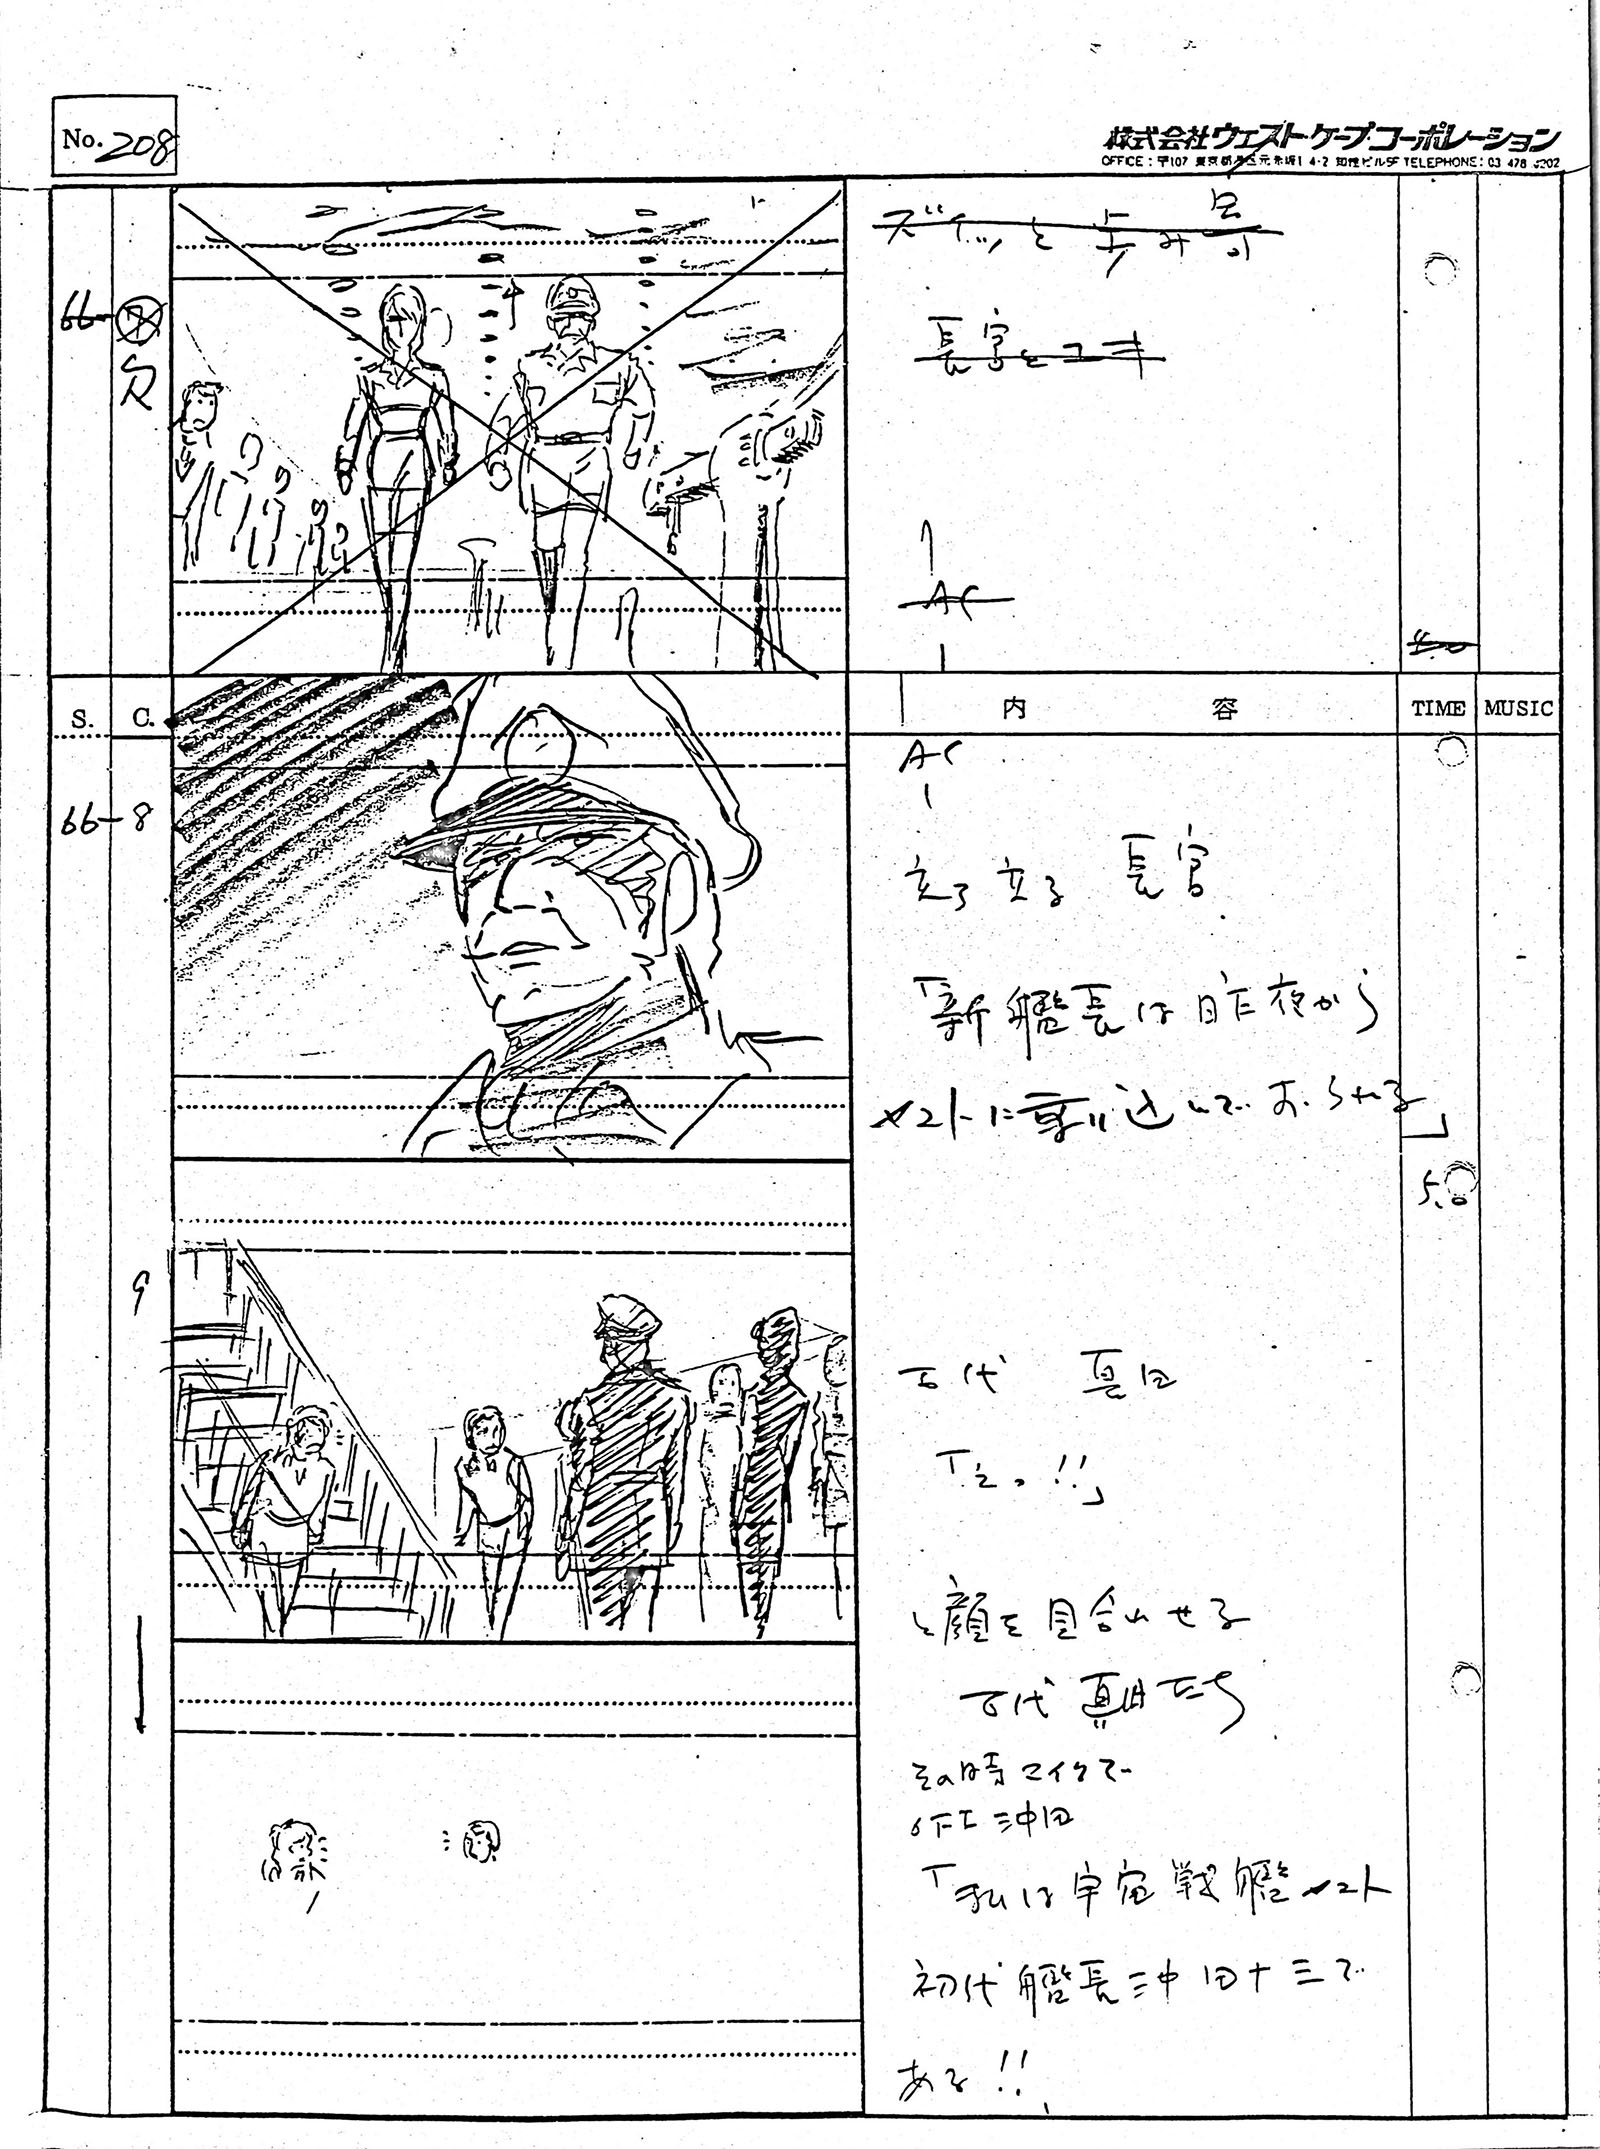 No. 208
株式会社ウェスト・ケープ・コーポレーション
OFFICE: 〒107 東京都港区元赤坂1-4-2 知性ビル5F TELEPHONE: 03 478
66-
欠
ズイッと歩み
長官とユキ
AC
S. C. 内 容 TIME MUSIC
66-8
AC
立る 長官
「新艦長は昨夜から
ヤマトに乗り込んでおられる」
5.0
9
古代 真田
「えっ!!」
と顔を見合わせる
古代 真田たち
その時マイクで
OFF 沖田
「私は宇宙戦艦ヤマト
初代艦長沖田十三で
ある!!